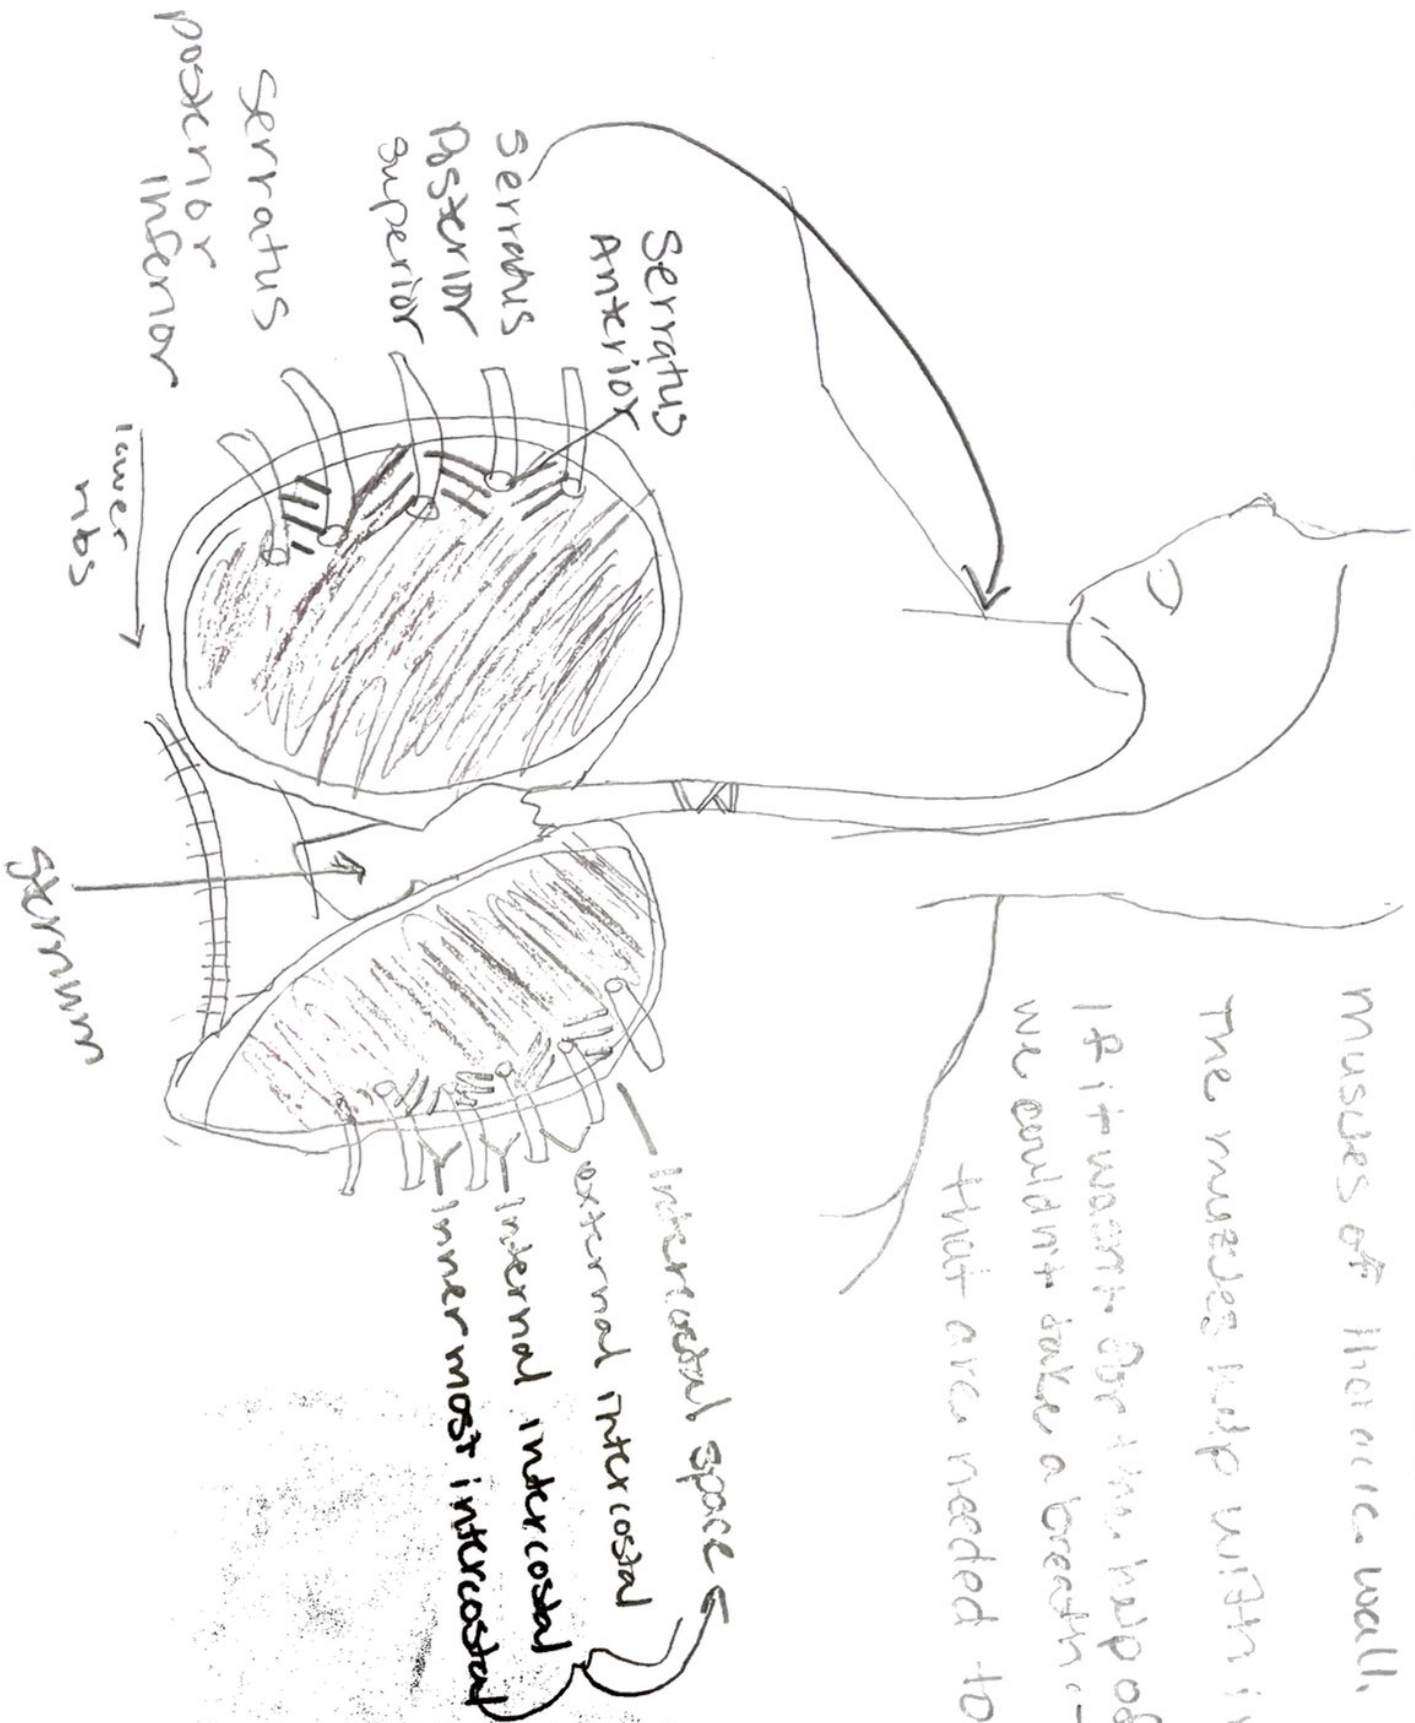 muscles of thoracic wall.
The muscles help with i
If it wasnt for the help of
we couldn't take a breath -
that are needed to
Serratus
Anterior
Serratus
Posterior
superior
Serratus
posterior
Inferior
lower
ribs
sternum
intercostal space
external intercostal
Internal intercostal
inner most intercostal